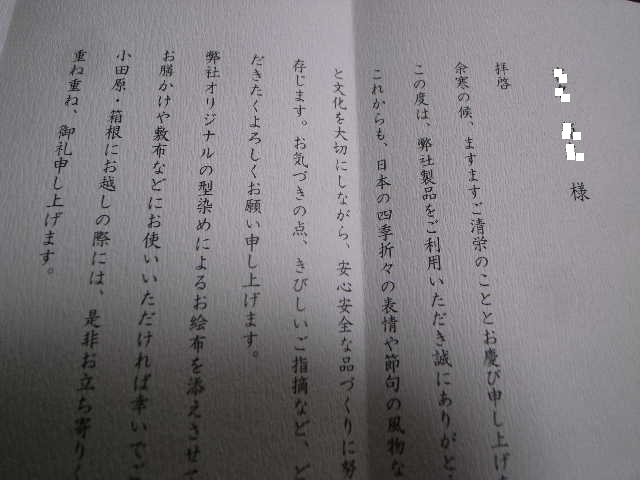 様
拝啓
余寒の候、ますますご清栄のこととお慶び申し上げま
この度は、弊社製品をご利用いただき誠にありがと
これからも、日本の四季折々の表情や節句の風物な
と文化を大切にしながら、安心安全な品づくりに努
存じます。お気づきの点、きびしいご指摘など、ど
だきたくよろしくお願い申し上げます。
弊社オリジナルの型染めによるお絵布を添えさせて
お膳かけや敷布などにお使いいただければ幸いでご
小田原・箱根にお越しの際には、是非お立ち寄りく
重ね重ね、御礼申し上げます。